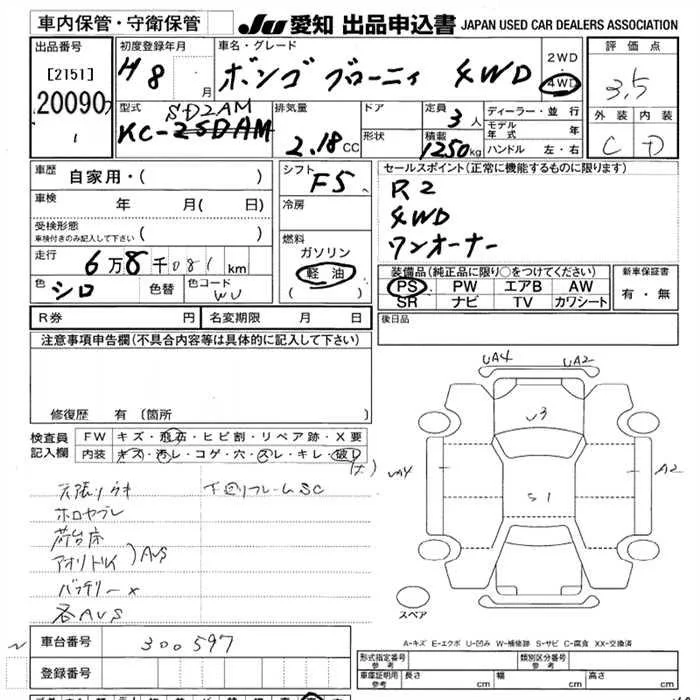 車内保管・守衛保管
JU 愛知 出品申込書 JAPAN USED CAR DEALERS ASSOCIATION
出品番号
[2151]
20090
初度登録年月
H8 月
車名・グレード
ボンゴ ブローニィ 4WD
2WD
4WD
評価点
3,5
外装 内装
C D
型式
SD2AM
KC-
排気量
2.18 CC
ドア
形状
定員
3 人
積載
1250 kg
ディーラー・並行
モデル年式 年
ハンドル 左・右
車歴
自家用・( )
車検
年 月( 日)
受検形態
車検付きのみ記入して下さい ( )
走行
6 万 8 千 081 km
色
シロ
色替
色コード
WU
シフト
F5
冷房
燃料
ガソリン
軽油
( )
セールスポイント(正常に機能するものに限ります)
R2
4WD
ワンオーナー
装備品(純正品に限り○をつけてください)
PS PW エアB AW
SR ナビ TV カワシート
新車保証書
有・無
R券 円
名変期限 月 日
後日品
注意事項申告欄(不具合内容等は具体的に記入して下さい)
修復歴 有(箇所
検査員記入欄
FW キズ・飛石・ヒビ割・リペア跡・X要
内装 キズ・汚レ・コゲ・穴・スレ・キレ・破レ
天張りウキ 下回リフレームSC
ホロヤブレ
荷台床
アオリトメ )AUS
バッテリー×
各AUS
UA4 UA2
U3
UA4 S1 A2
スペア
A-キズ E-エクボ U-凹み W-補修跡 S-サビ C-腐食 XX-交換済
車台番号
300597
登録番号
形式指定番号
参考
類別区分番号
参考
車庫証明用
参考
長さ cm 幅 cm 高さ cm